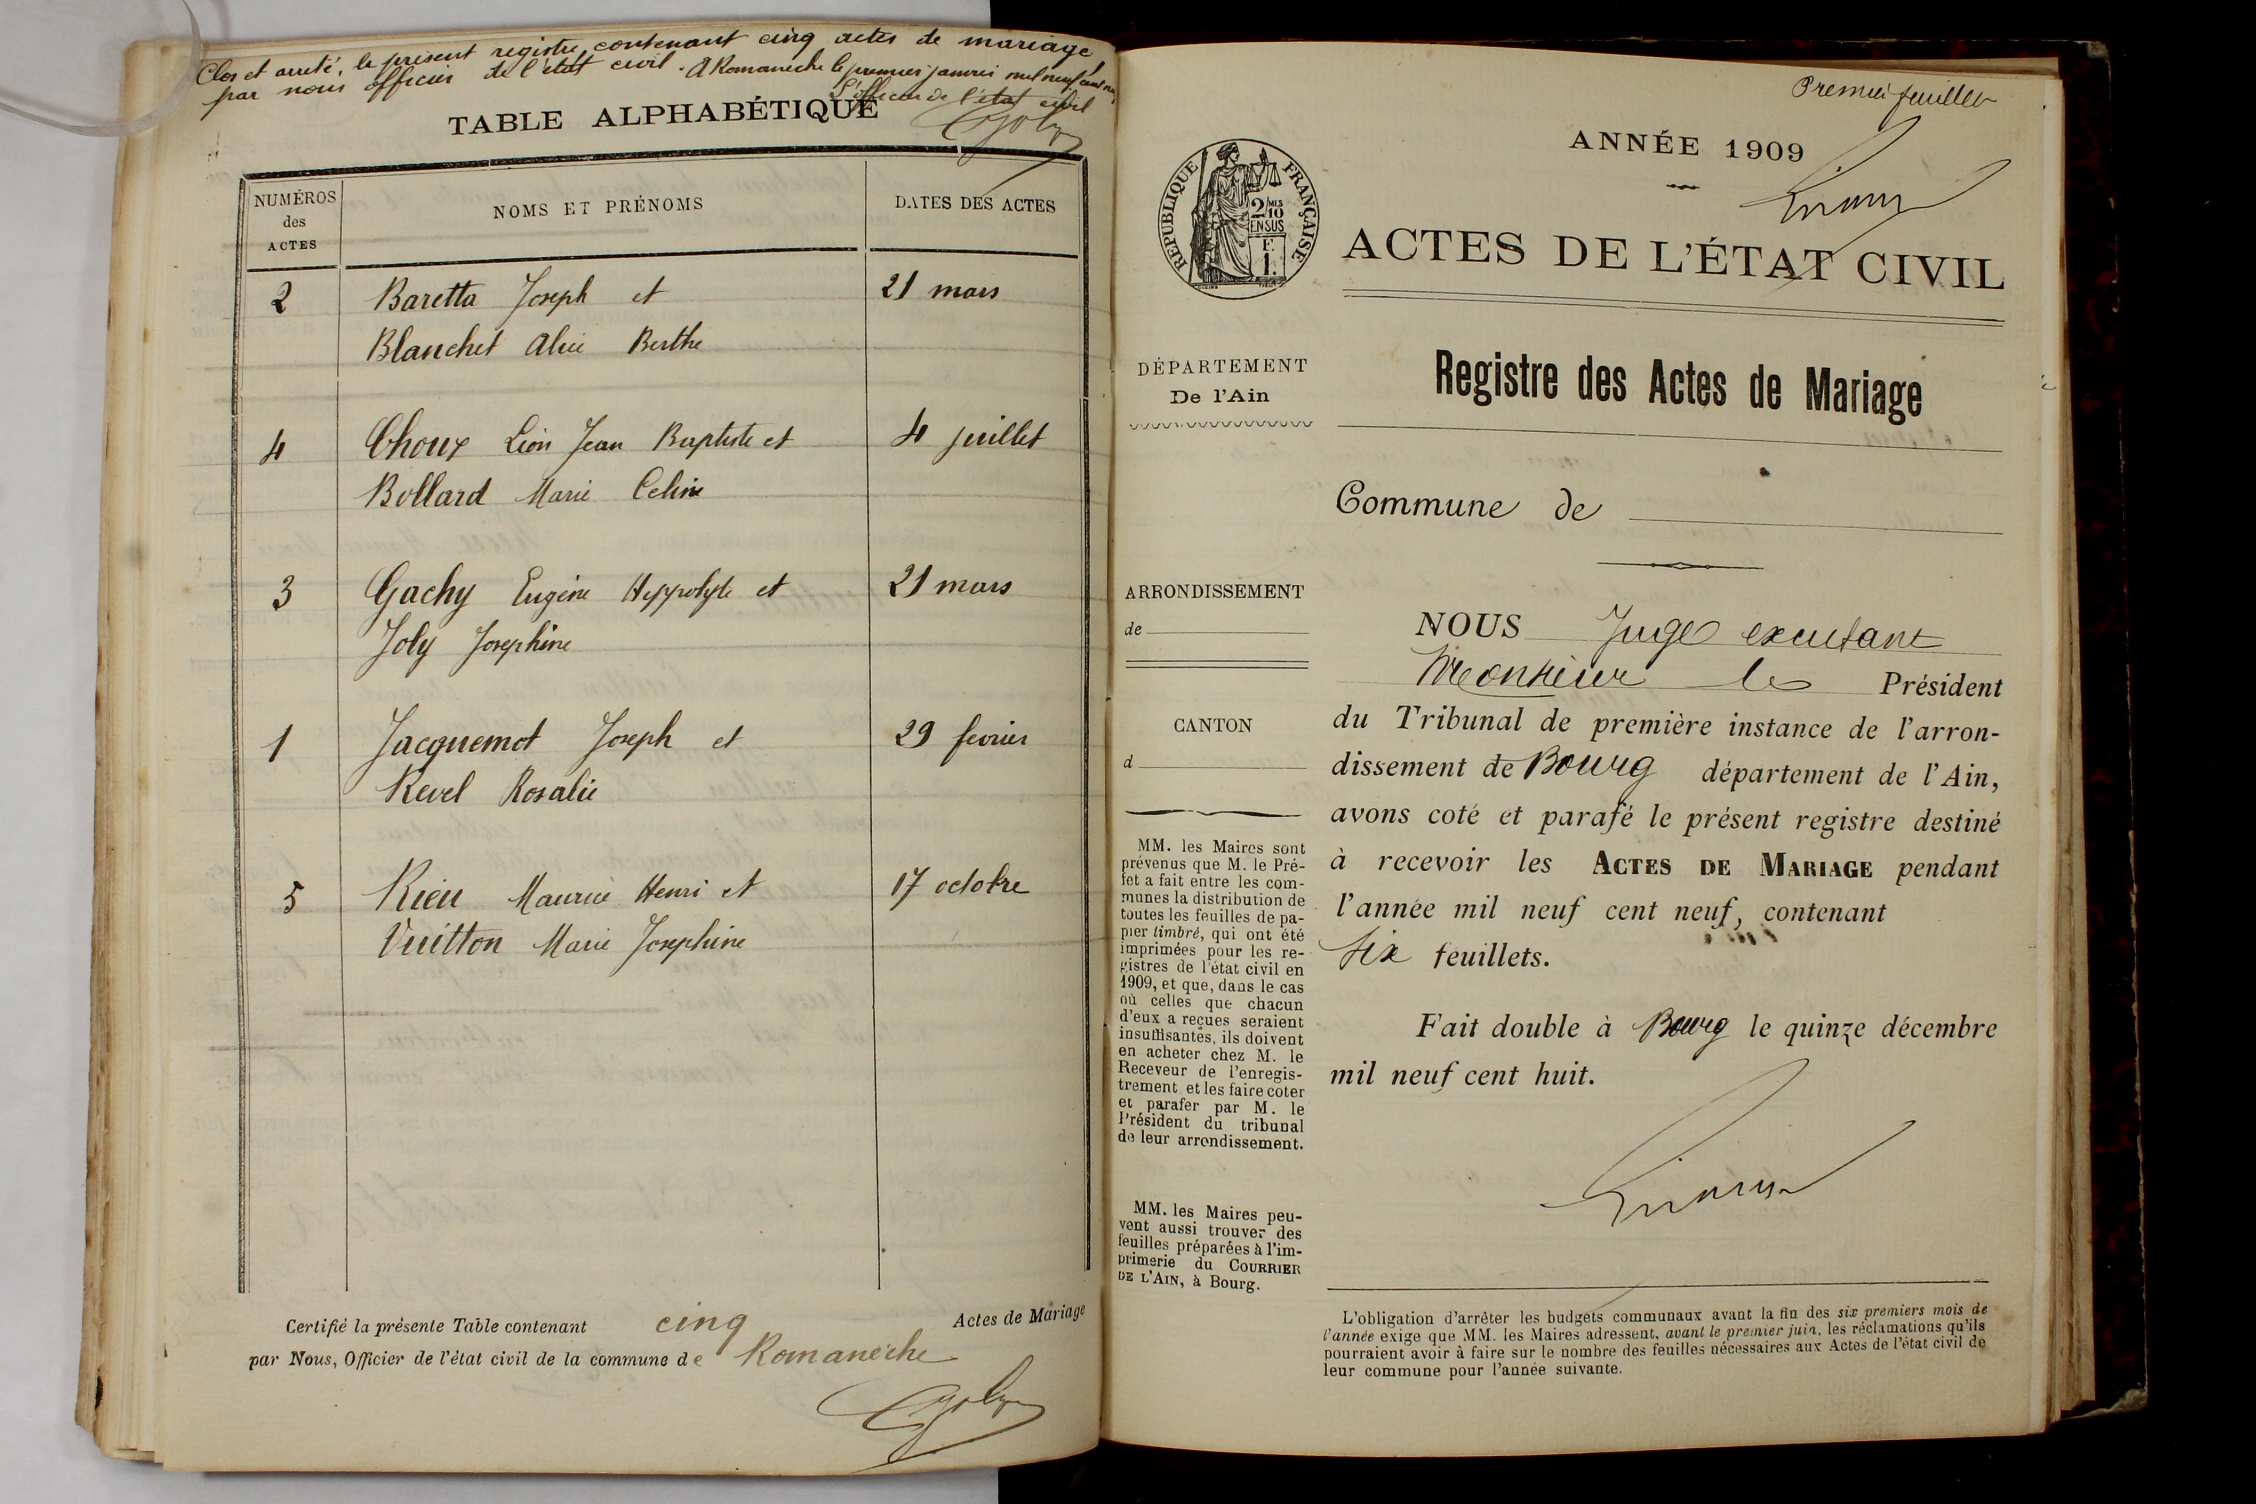 Clos et arreté, le présent registre contenant cinq actes de mariage,
par nous officier de l'état civil. A Romanèche le premier janvier mil neuf cent
L'officier de l'état civil
TABLE ALPHABÉTIQUE
NUMÉROS des ACTES
NOMS ET PRÉNOMS
DATES DES ACTES
2 Baretta Joseph et 21 mars
Blanchet Alice Berthe
4 Choux Léon Jean Baptiste et 4 juillet
Bollard Marie Celine
3 Gachy Eugène Hyppolyte et 21 mars
Joly Josephine
1 Jacquemot Joseph et 29 fevrier
Revel Rosalie
5 Rieu Maurice Henri et 17 octobre
Vuitton Marie Josephine
Certifié la présente Table contenant cinq Actes de Mariage
par Nous, Officier de l'état civil de la commune de Romanèche
Joly
Premier feuillet
ANNÉE 1909
RÉPUBLIQUE FRANÇAISE
2/10 EN SUS
ACTES DE L'ÉTAT CIVIL
DÉPARTEMENT
De l'Ain
Registre des Actes de Mariage
Commune de
ARRONDISSEMENT
de
CANTON
d
MM. les Maires sont
prévenus que M. le Pré-
fet a fait entre les com-
munes la distribution de
toutes les feuilles de pa-
pier timbré, qui ont été
imprimées pour les re-
gistres de l'état civil en
1909, et que, dans le cas
où celles que chacun
d'eux a reçues seraient
insuffisantes, ils doivent
en acheter chez M. le
Receveur de l'enregis-
trement et les faire coter
et parafer par M. le
Président du tribunal
de leur arrondissement.
MM. les Maires peu-
vent aussi trouver des
feuilles préparées à l'im-
primerie du COURRIER
DE L'AIN, à Bourg.
NOUS Juge
Monsieur le Président
du Tribunal de première instance de l'arron-
dissement de Bourg département de l'Ain,
avons coté et parafé le présent registre destiné
à recevoir les ACTES DE MARIAGE pendant
l'année mil neuf cent neuf, contenant
six feuillets.
Fait double à Bourg le quinze décembre
mil neuf cent huit.
L'obligation d'arrêter les budgets communaux avant la fin des six premiers mois de
l'année exige que MM. les Maires adressent, avant le premier juin, les réclamations qu'ils
pourraient avoir à faire sur le nombre des feuilles nécessaires aux Actes de l'état civil de
leur commune pour l'année suivante.